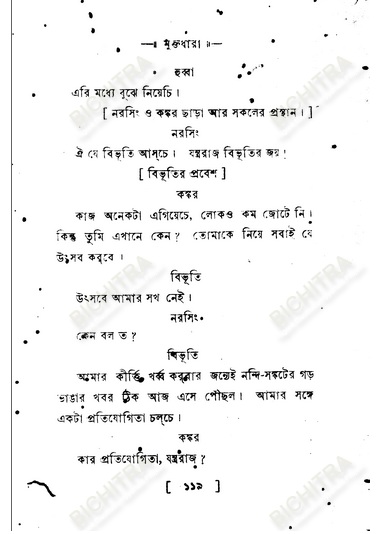 —॥ মুক্তধারা ॥—
হুব্বা
এরি মধ্যে বুঝে নিয়েচি।
[ নরসিং ও কঙ্কর ছাড়া আর সকলের প্রস্থান। ]
নরসিং
ঐ যে বিভূতি আস্‌চে। যন্ত্ররাজ বিভূতির জয়!
[ বিভূতির প্রবেশ ]
কঙ্কর
কাজ অনেকটা এগিয়েচে, লোকও কম জোটে নি।
কিন্তু তুমি এখানে কেন? তোমাকে নিয়ে সবাই যে
উৎসব করবে।
বিভূতি
উৎসবে আমার সখ নেই।
নরসিং
কেন বল ত?
বিভূতি
আমার কীর্ত্তি খর্ব্ব করবার জন্যেই নন্দি-সঙ্কটের গড়
ভাঙার খবর ঠিক আজ এসে পৌঁছল। আমার সঙ্গে
একটা প্রতিযোগিতা চল্‌চে।
কঙ্কর
কার প্রতিযোগিতা, যন্ত্ররাজ?
[ ১১৯ ]
BICHITRA
BICHITRA
BICHITRA
BICHITRA
BICHITRA
BICHITRA